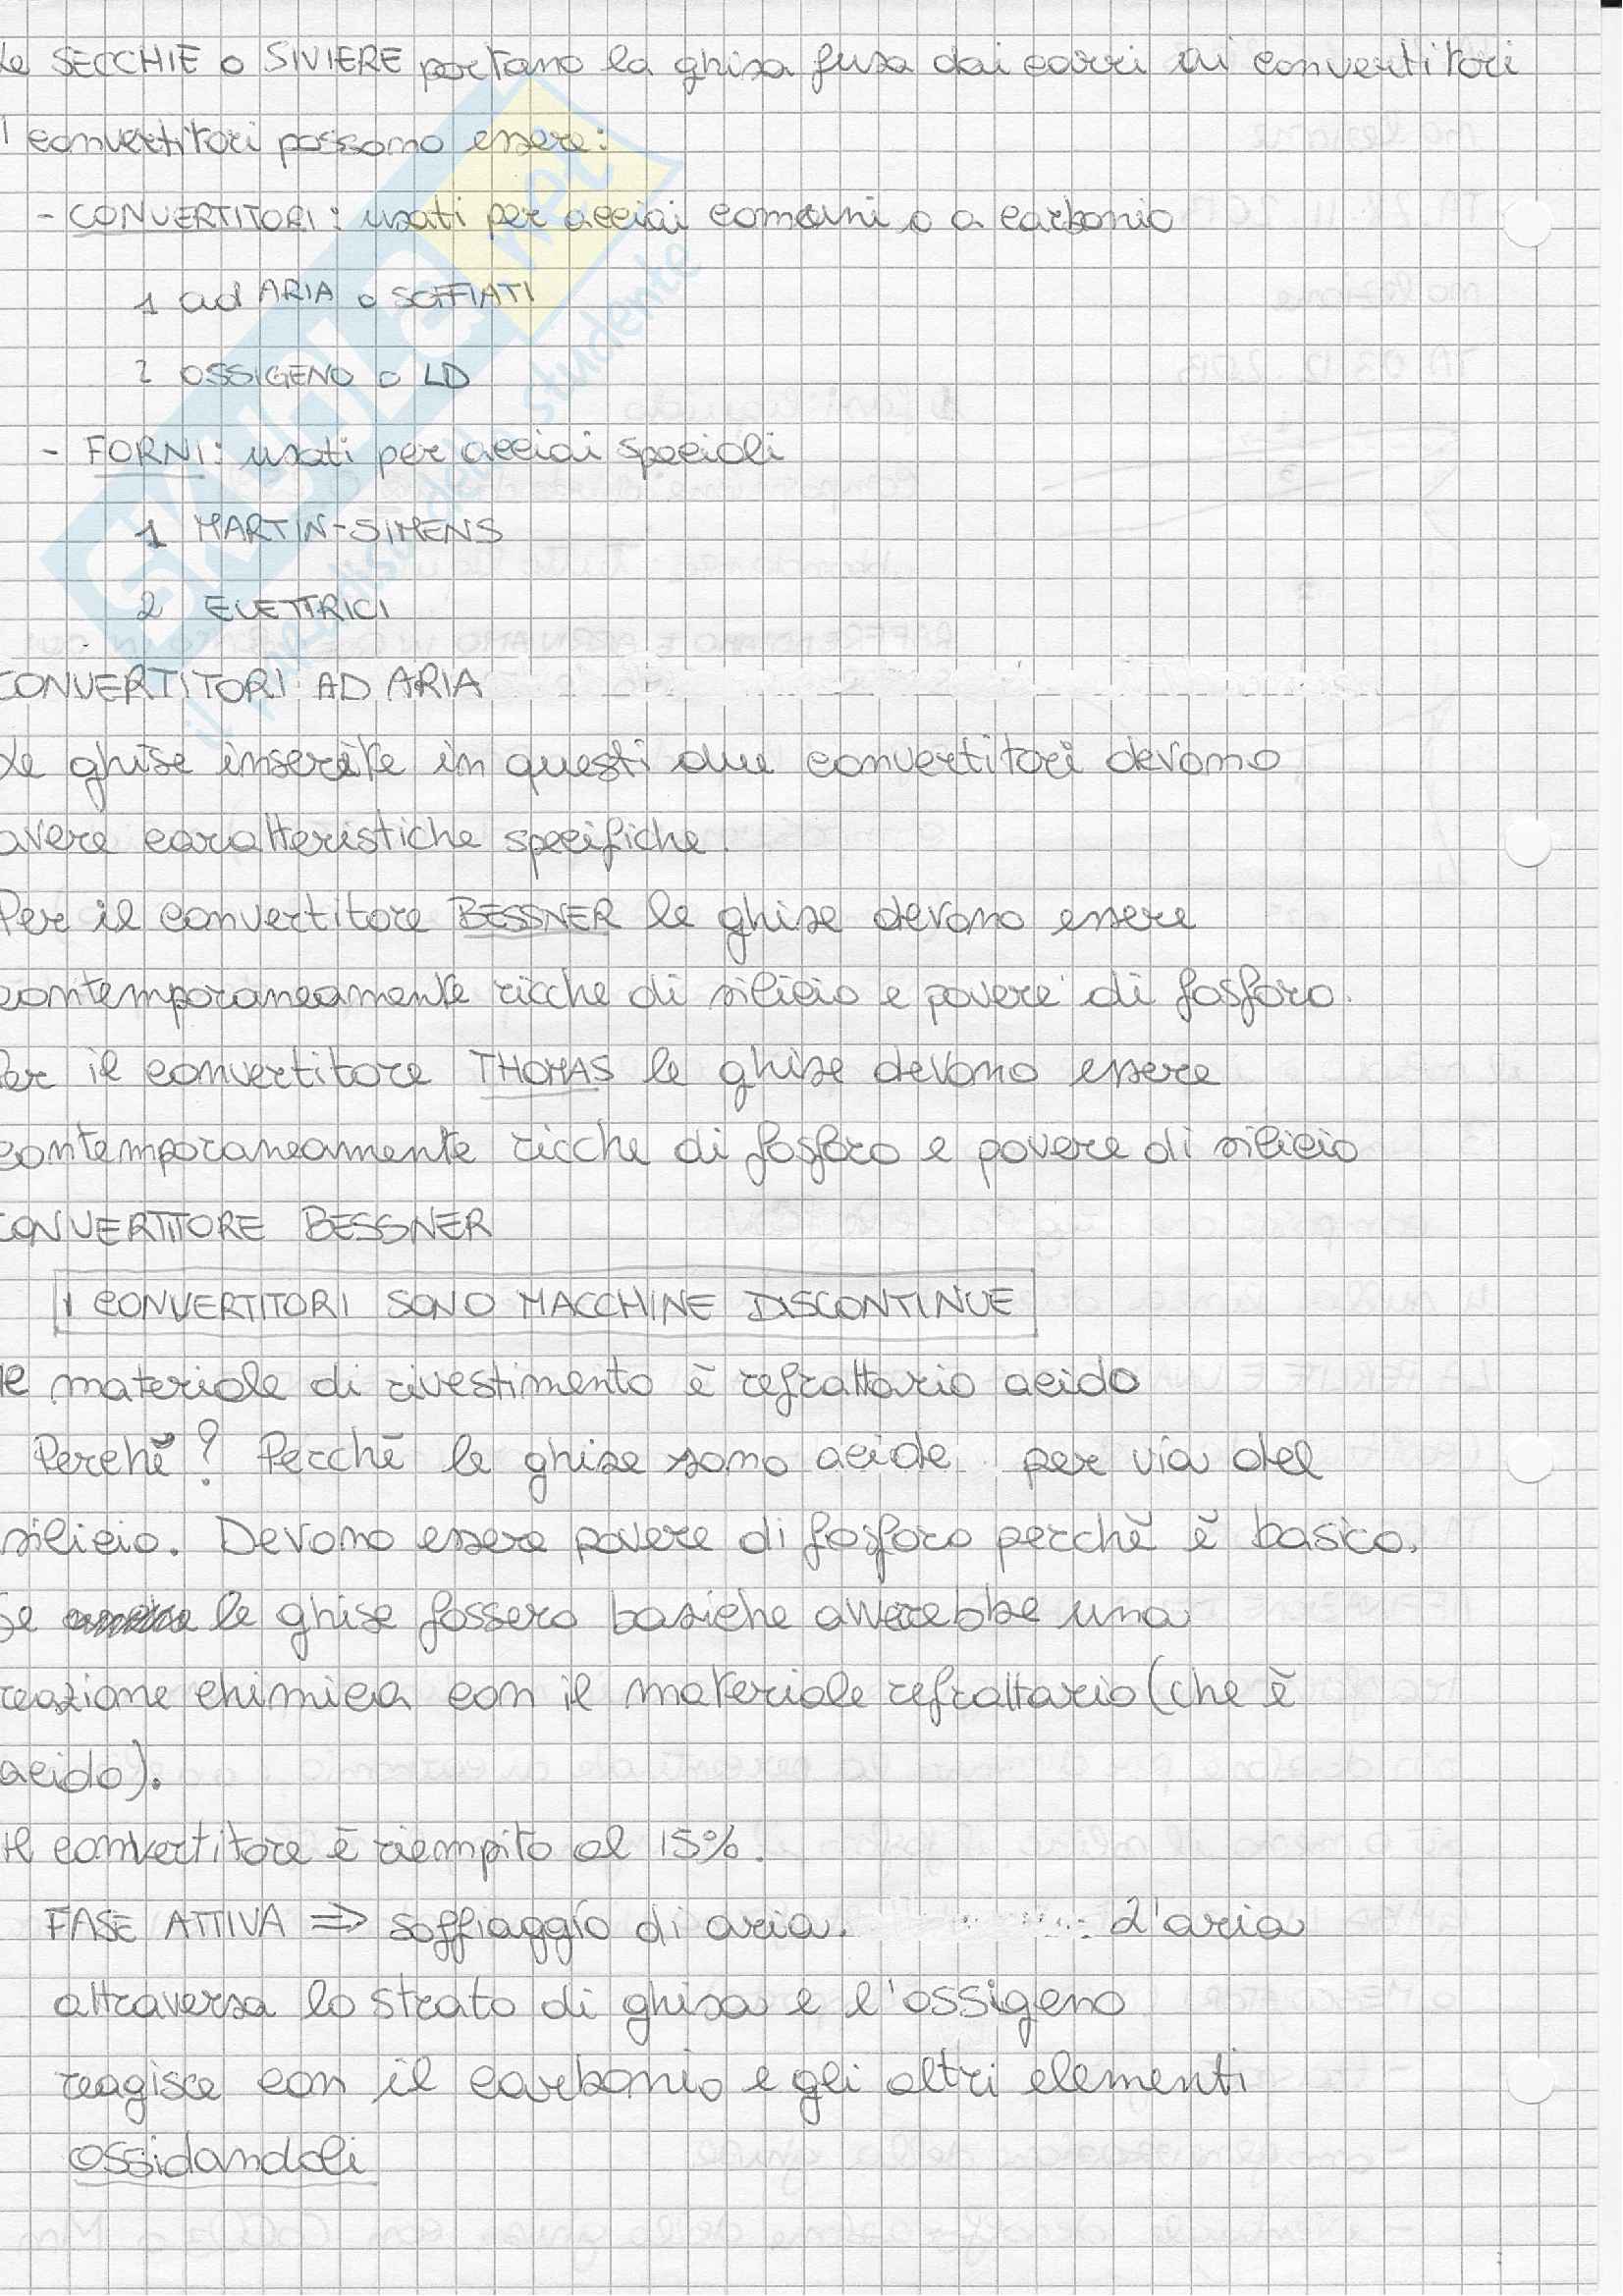 Le SECCHIE o SIVIERE portano la ghisa fusa dai carri ai convertitori
I convertitori possono essere:
- CONVERTITORI: usati per acciai comuni o a carbonio
1 ad ARIA o SOFFIATI
2 OSSIGENO o LD
- FORNI: usati per acciai speciali
1 MARTIN-SIMENS
2 ELETTRICI
CONVERTITORI AD ARIA
Le ghise inserite in questi due convertitori devono
avere caratteristiche specifiche.
Per il convertitore BESSNER le ghise devono essere
contemporaneamente ricche di silicio e povere di fosforo.
Per il convertitore THOMAS le ghise devono essere
contemporaneamente ricche di fosforo e povere di silicio
CONVERTITORE BESSNER
I CONVERTITORI SONO MACCHINE DISCONTINUE
Il materiale di rivestimento è refrattario acido
Perchè? Perchè le ghise sono acide per via del
silicio. Devono essere povere di fosforo perchè è basico.
Se le ghise fossero basiche avverrebbe una
reazione chimica con il materiale refrattario (che è
acido).
Il convertitore è riempito al 15%.
FASE ATTIVA ⇒ soffiaggio di aria. L'aria
attraversa lo strato di ghisa e l'ossigeno
reagisce con il carbonio e gli altri elementi
ossidandoli
SKUOLA.net
il paradiso dello studente